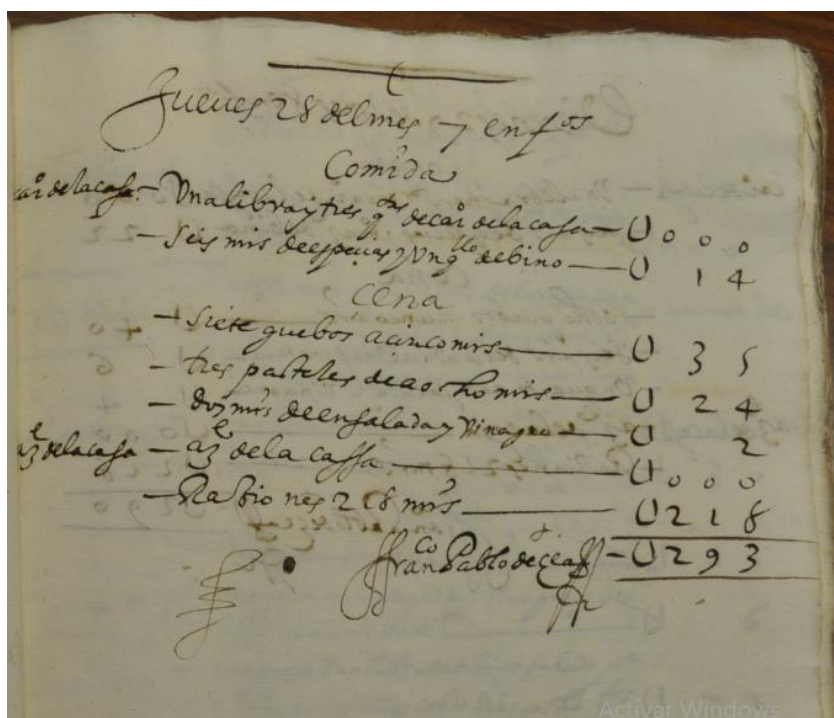 Jueves 28 del mes y enfos
Comida
car de la casa - Una libra y tres qtas de car de la casa — U000
- Seis mrs de especias y un qllo de bino — U 14
Cena
- Siete guebos a cinco mrs — U 35
- tres pasteles de a ocho mrs — U 24
- dos mrs de ensalada y vinagre — U 2
aze de la casa - aze de la cassa — U000
- Rasiones 218 mrs — U218
franco Pablo de — U293
Activar Windows